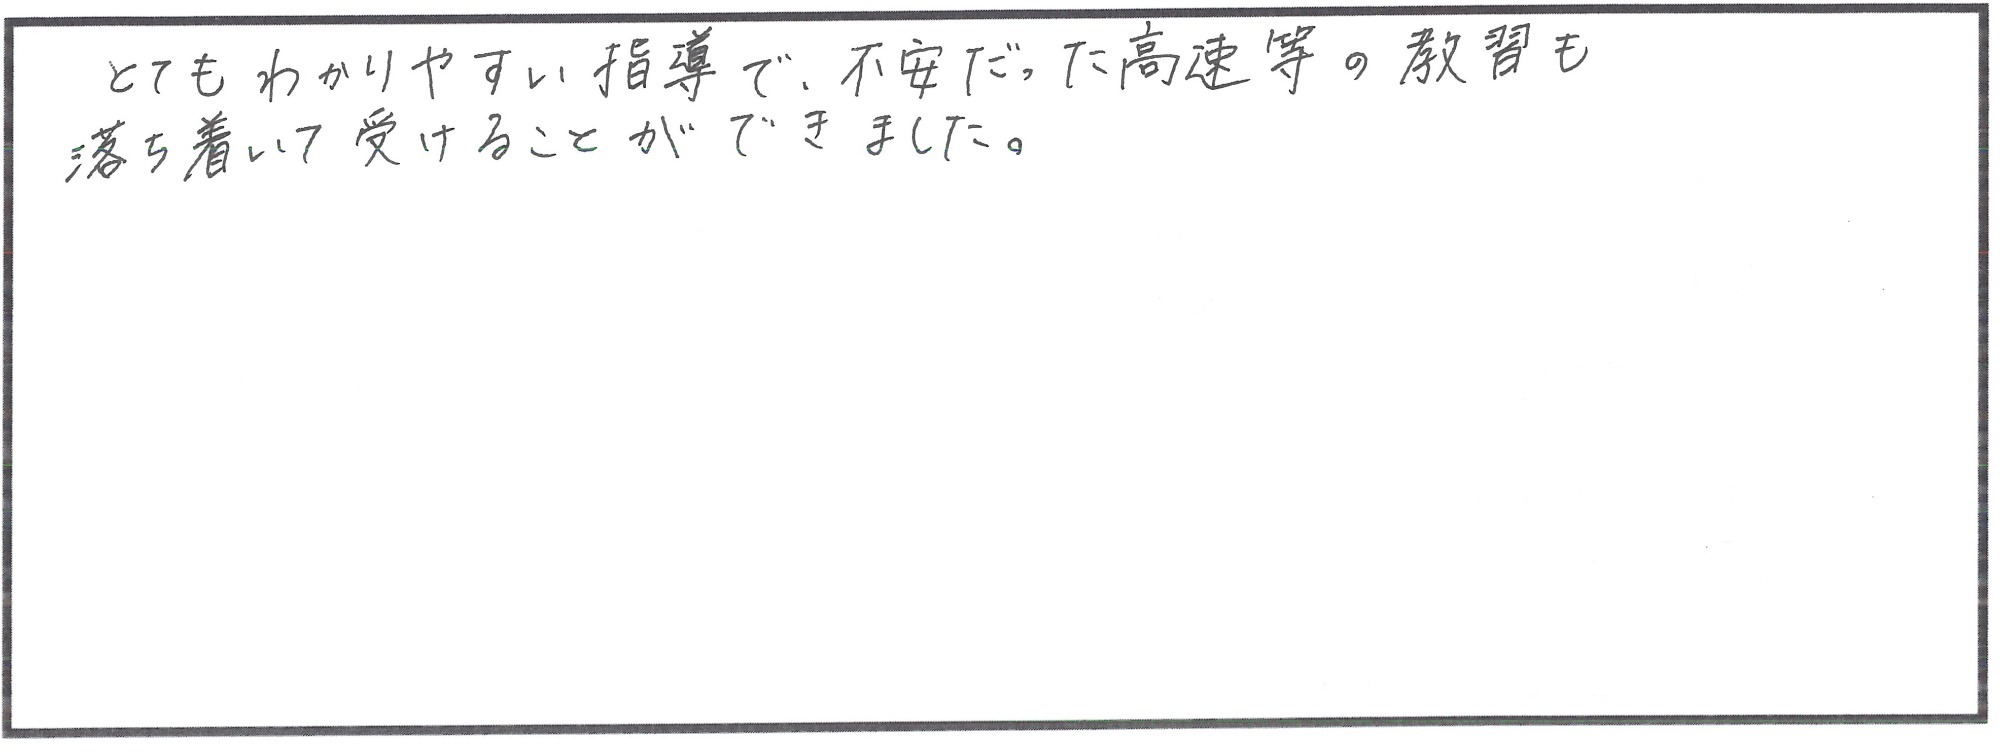 とてもわかりやすい指導で、不安だった高速等の教習も
落ち着いて受けることができました。